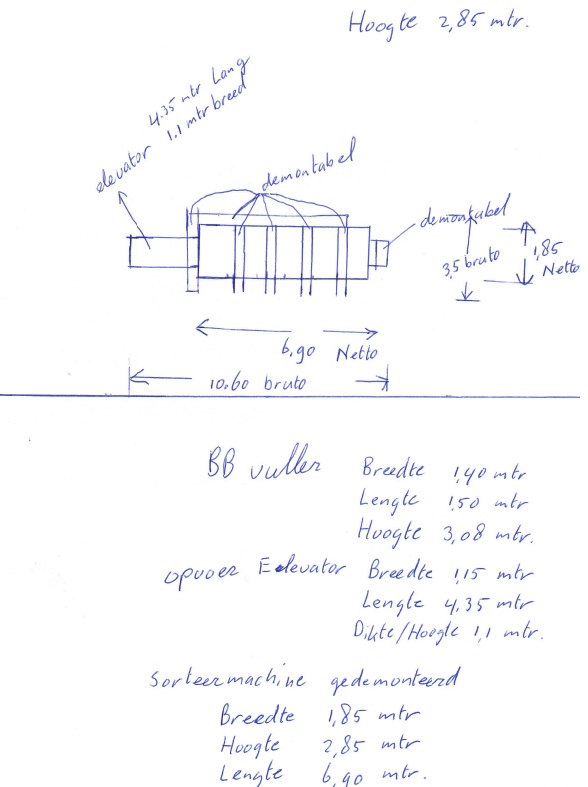 Hoogte 2,85 mtr.
4.35 mtr Lang
1.1 mtr breed
elevator
demontabel
demontabel
3,5 bruto
1,85
Netto
6,90 Netto
10.60 bruto
BB vuller Breedte 1,40 mtr
Lengte 1,50 mtr
Hoogte 3,08 mtr.
opvoer Elevator Breedte 1,15 mtr
Lengte 4,35 mtr
Dikte/Hoogte 1,1 mtr.
Sorteermachine gedemonteerd
Breedte 1,85 mtr
Hoogte 2,85 mtr
Lengte 6,90 mtr.